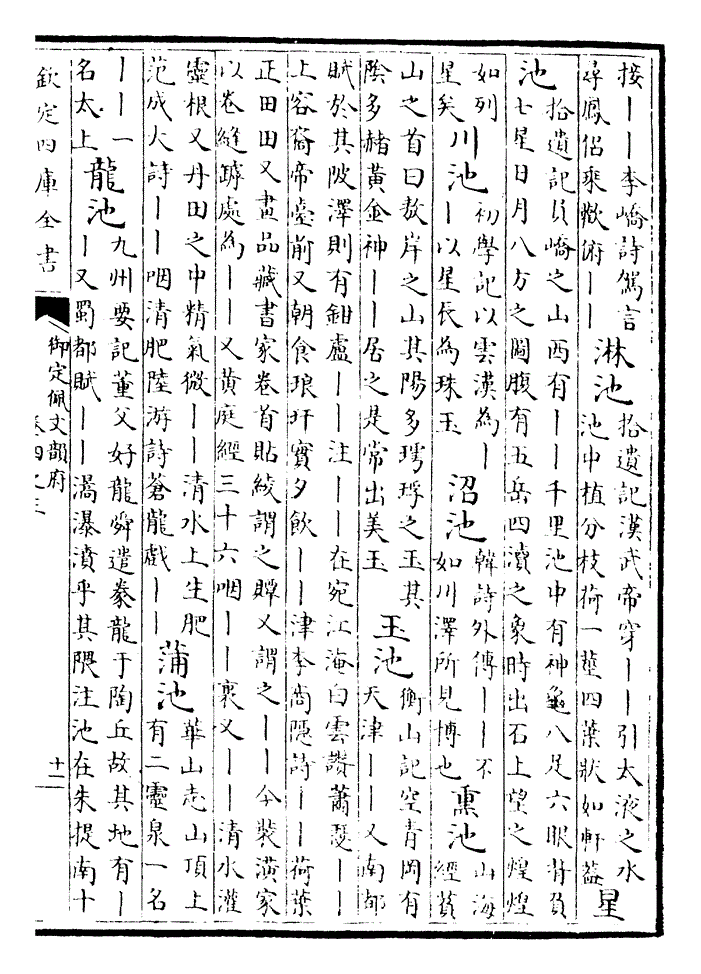 接丨丨李嶠詩鴛言
尋鳳侶乘歡俯丨丨
淋池
拾遺記漢武帝穿丨丨引太液之水
池中植分枝荷一莖四葉狀如軒蓋
星
池
拾遺記員嶠之山西有丨丨千里池中有神龜八足六眼背負
七星日月八方之圖腹有五岳四瀆之象時出石上望之煌煌
如列
星矣
川池
初學記以雲漢為丨
丨以星辰為珠玉
沼池
韓詩外傳丨丨不
如川澤所見博也
熏池
山海
經萯
山之首曰敖岸之山其陽多㻬琈之玉其
陰多赭黃金神丨丨居之是常出美玉
玉池
衡山記空青岡有
天津丨丨又南都
賦於其陂澤則有鉗盧丨丨注丨丨在宛江淹白雲讚蕭瑟丨丨
上容裔帝臺前又朝食琅玕實夕飲丨丨津李尚隱詩丨丨荷葉
正田田又畫品藏書家卷首貼綾謂之贉又謂之丨丨今裝潢家
以卷縫罅處為丨丨又黃庭經三十六咽丨丨裏又丨丨清水灌
靈根又丹田之中精氣微丨丨清水上生肥
范成大詩丨丨咽清肥陸游詩蒼龍戲丨丨
蒲池
華山志山頂上
有二靈泉一名
丨丨一
名太上
龍池
九州要記董父好龍舜遣豢龍于陶丘故其地有丨
丨又蜀都賦丨丨瀥瀑濆乎其隈注池在朱提南十
欽定四庫全書
御定佩文韻府
卷四之三
十二